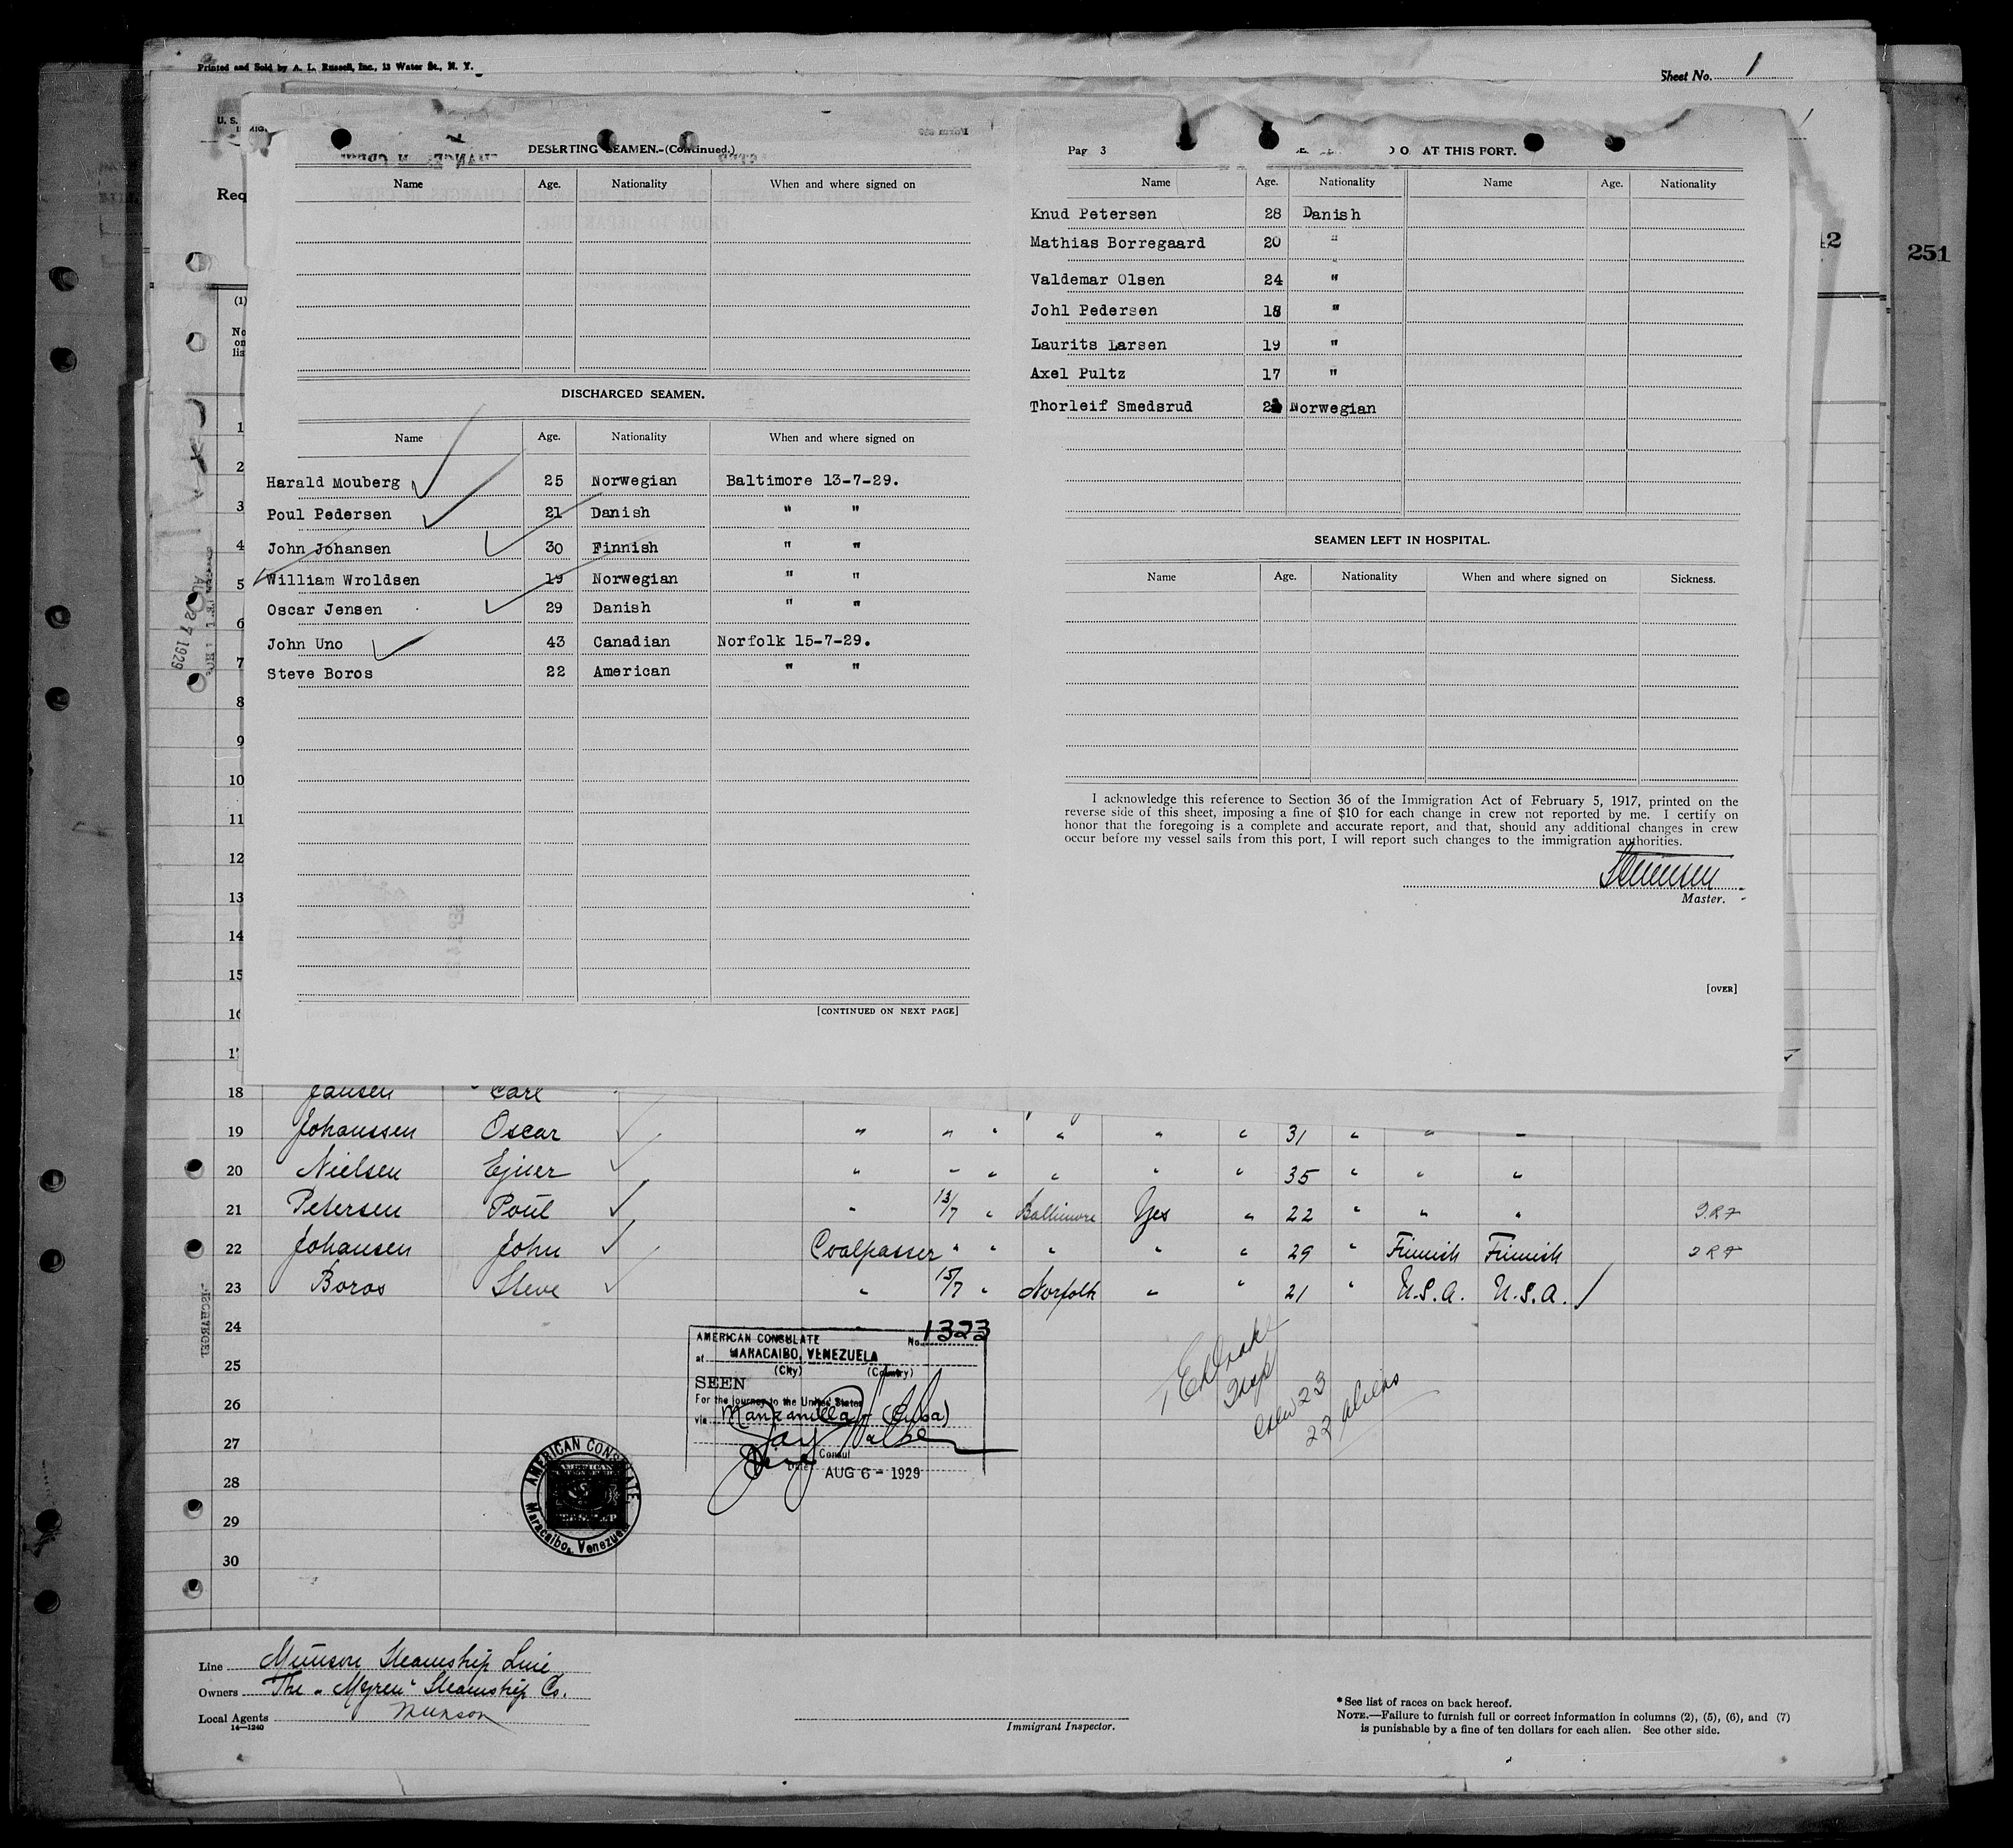 Printed and Sold by A. L. Russell, Inc., 13 Water St., N. Y.
Sheet No. 1
U. S.
Req
251
DESERTING SEAMEN.-(Continued.)
Name Age. Nationality When and where signed on
DISCHARGED SEAMEN.
Name Age. Nationality When and where signed on
Harald Mouberg 25 Norwegian Baltimore 13-7-29.
Poul Pedersen 21 Danish " "
John Johansen 30 Finnish " "
William Wroldsen 19 Norwegian " "
Oscar Jensen 29 Danish " "
John Uno 43 Canadian Norfolk 15-7-29.
Steve Boros 22 American " "
[CONTINUED ON NEXT PAGE]
Pag 3
AT THIS PORT.
Name Age. Nationality Name Age. Nationality
Knud Petersen 28 Danish
Mathias Borregaard 20 "
Valdemar Olsen 24 "
Johl Pedersen 18 "
Laurits Larsen 19 "
Axel Pultz 17 "
Thorleif Smedsrud Norwegian
SEAMEN LEFT IN HOSPITAL.
Name Age. Nationality When and where signed on Sickness.
I acknowledge this reference to Section 36 of the Immigration Act of February 5, 1917, printed on the
reverse side of this sheet, imposing a fine of $10 for each change in crew not reported by me. I certify on
honor that the foregoing is a complete and accurate report, and that, should any additional changes in crew
occur before my vessel sails from this port, I will report such changes to the immigration authorities.
Master.
[OVER]
(1)
No
on
lis
1
2
3
4
5
6
7
8
9
10
11
12
13
14
15
18 Jansen Carl
19 Johanssen Oscar " " " " " " 31 " " "
20 Nielsen Ejner " " " " " " 35 " " "
21 Petersen Poul " 13/7 " Baltimore Yes " 22 " " "
22 Johansen John Coalpasser " " " " " 29 " Finnish Finnish
23 Boros Steve " 15/7 " Norfolk " " 21 " U.S.A. U.S.A.
24
25
26
27
28
29
30
AMERICAN CONSULATE No. 1323
at MARACAIBO, VENEZUELA
(City) (Country)
SEEN
For the journey to the United States
via Manzanilla (Cuba)
Consul
Date AUG 6 - 1929
AMERICAN CONSULATE
Maracaibo, Venezuela
crew 23
22 aliens
AUG 27 1929
Line Munson Steamship Line
Owners The "Myren" Steamship Co.
Local Agents Munson
14—1240
Immigrant Inspector.
* See list of races on back hereof.
NOTE.—Failure to furnish full or correct information in columns (2), (5), (6), and (7)
is punishable by a fine of ten dollars for each alien. See other side.